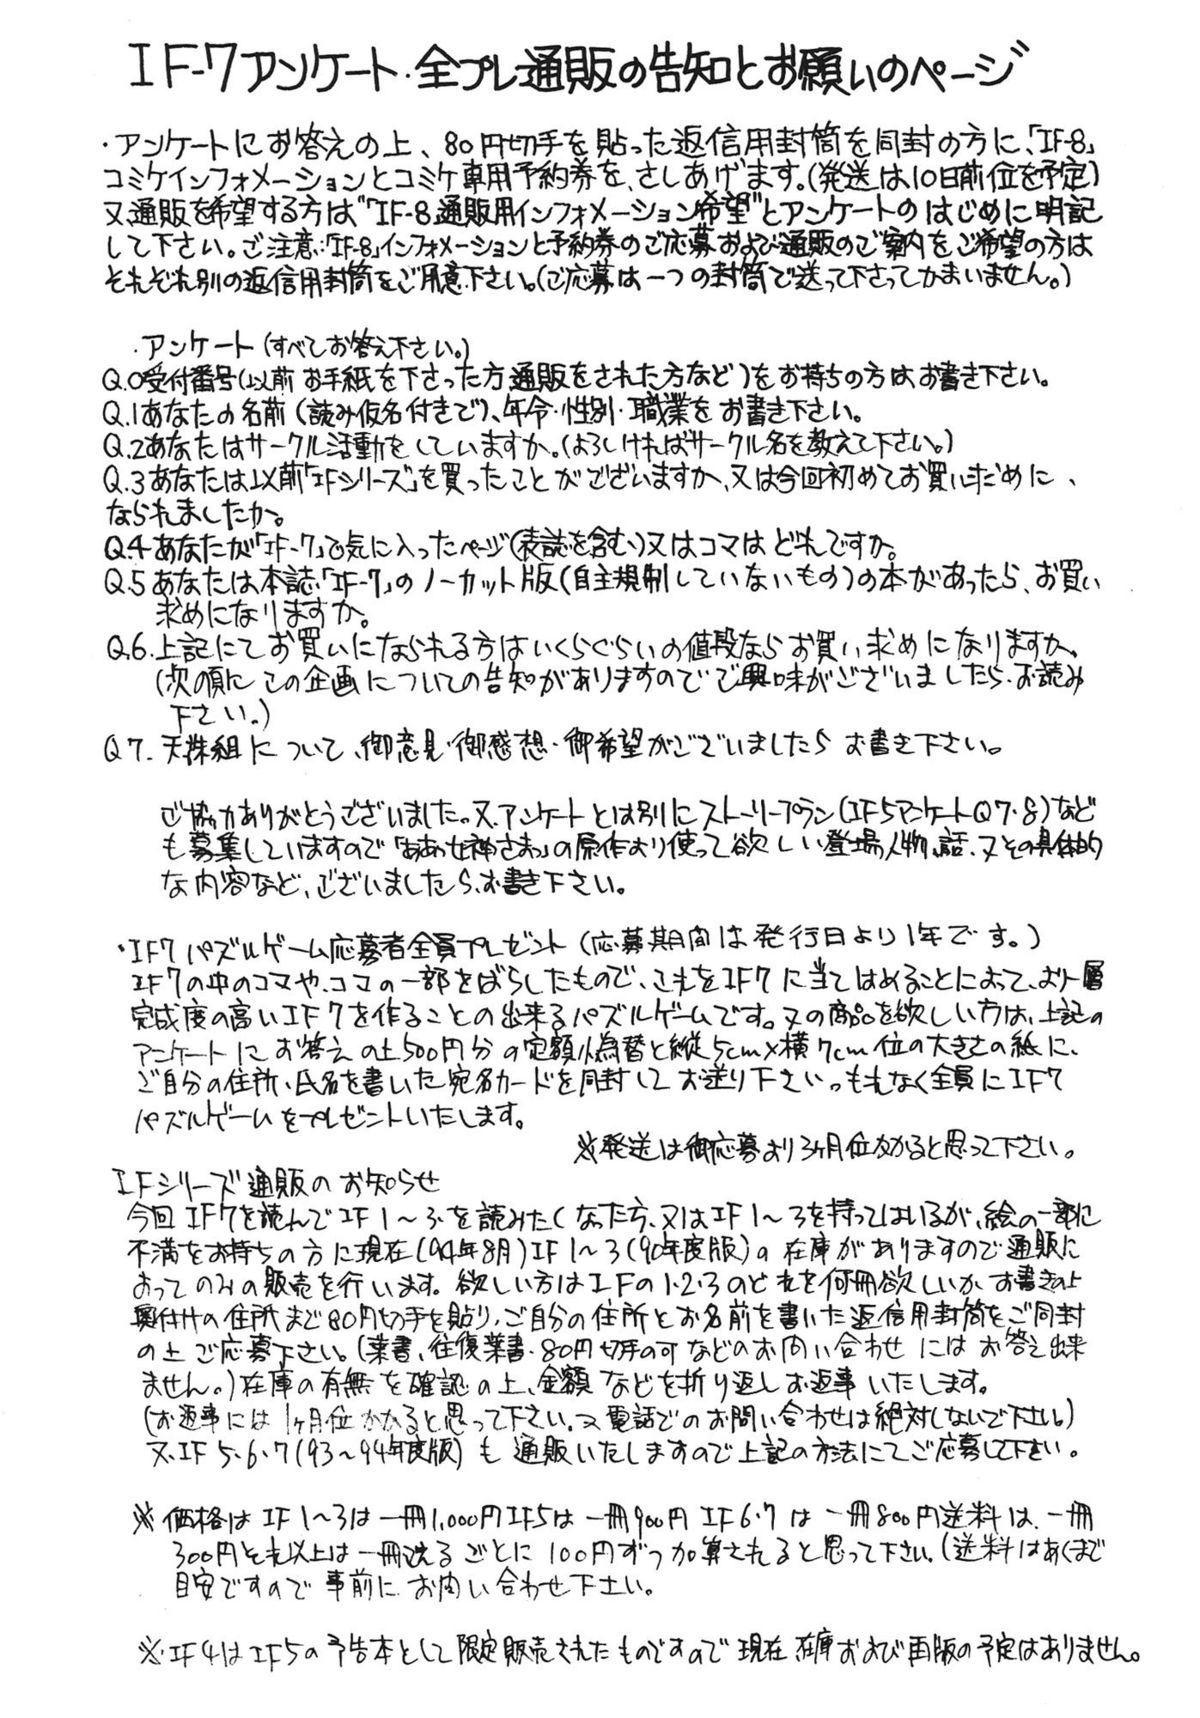 IF-7アンケート・全プレ通販の告知とお願いのページ
・アンケートにお答えの上、80円切手を貼った返信用封筒を同封の方に、「IF-8」
コミケインフォメーションとコミケ専用予約券を、さしあげます。(発送は、10日前位を予定)
又、通販を希望する方は"「IF-8」通販用インフォメーション希望"とアンケートのはじめに明記
して下さい。ご注意:「IF-8」インフォメーションと予約券のご応募および通販のご案内をご希望の方は
それぞれ別の返信用封筒をご用意下さい。(ご応募は一つの封筒で送って下さってかまいません。)
・アンケート(すべてお答え下さい。)
Q.0受付番号(以前お手紙を下さった方通販をされた方など)をお持ちの方は、お書き下さい。
Q.1あなたの名前(読み仮名付きで)、年令・性別・職業をお書き下さい。
Q.2あなたはサークル活動をしていますか。(よろしければサークル名を教えて下さい。)
Q.3あなたは以前「IFシリーズ」を買ったことがございますか、又は今回初めてお買い求めに、
なられましたか。
Q4あなたが「IF-7」で気に入ったページ(表誌を含む)又はコマはどれですか。
Q.5あなたは本誌「IF-7」のノーカット版(自主規制していないもの)の本があったら、お買い
求めになりますか。
Q.6.上記にてお買いになられる方はいくらぐらいの値段ならお買い求めになりますか。
(次の項にこの企画についての告知がありますのでご興味がございましたら、お読み
下さい。)
Q7.天誅組について、御意見・御感想・御希望がございましたらお書き下さい。
ご協力ありがとうございました。又、アンケートとは別にストーリープラン(IF5アンケートQ7・8)など
も募集していますので「ああっ女神さまっ」の原作より使って欲しい登場人物、話、又その具体的
な内容など、ございましたら、お書き下さい。
・IF7パズルゲーム応募者全員プレゼント(応募期間は発行日より1年です。)
IF7の中のコマや、コマの一部をばらしたもので、これをIF7に当てはめることによって、より一層
完成度の高いIF7を作ることの出来るパズルゲームです。又の商品を欲しい方は、上記の
アンケートにお答えの上500円分の定額小為替と縦5cm×横7cm位の大きさの紙に、
ご自分の住所、氏名を書いた宛名カードを同封してお送り下さい。もれなく全員にIF7
パズルゲームをプレゼントいたします。
※発送は御応募より3ヶ月位かかると思って下さい。
IFシリーズ通販のお知らせ
今回IF7を読んでIF1〜3を読みたくなった方、又はIF1〜3を持ってはいるが、絵の一部に
不満をお持ちの方に現在(94年8月)IF1〜3(90年度版)の在庫がありますので通販に
よってのみの販売を行います。欲しい方はIFの1・2・3のどれを何冊欲しいか、お書きの上
奥付けの住所まで80円切手を貼り、ご自分の住所とお名前を書いた返信用封筒をご同封
の上ご応募下さい。(葉書、往復葉書、80円切手のみなどのお問い合わせにはお答え出来
ません。)在庫の有無を確認の上、金額などを折り返しお返事いたします。
(お返事には1ヶ月位かかると思って下さい。又電話でのお問い合わせは絶対しないで下さい。)
又、IF5・6・7(93〜94年度版)も通販いたしますので上記の方法にてご応募して下さい。
※価格はIF1〜3は一冊1,000円IF5は一冊900円IF6・7は一冊800円送料は、一冊
300円それ以上は一冊送るごとに100円ずつ加算されると思って下さい。(送料はあくまで
目安ですので事前にお問い合わせ下さい。
※IF4はIF5の予告本として限定販売されたものですので現在、在庫および再版の予定はありません。